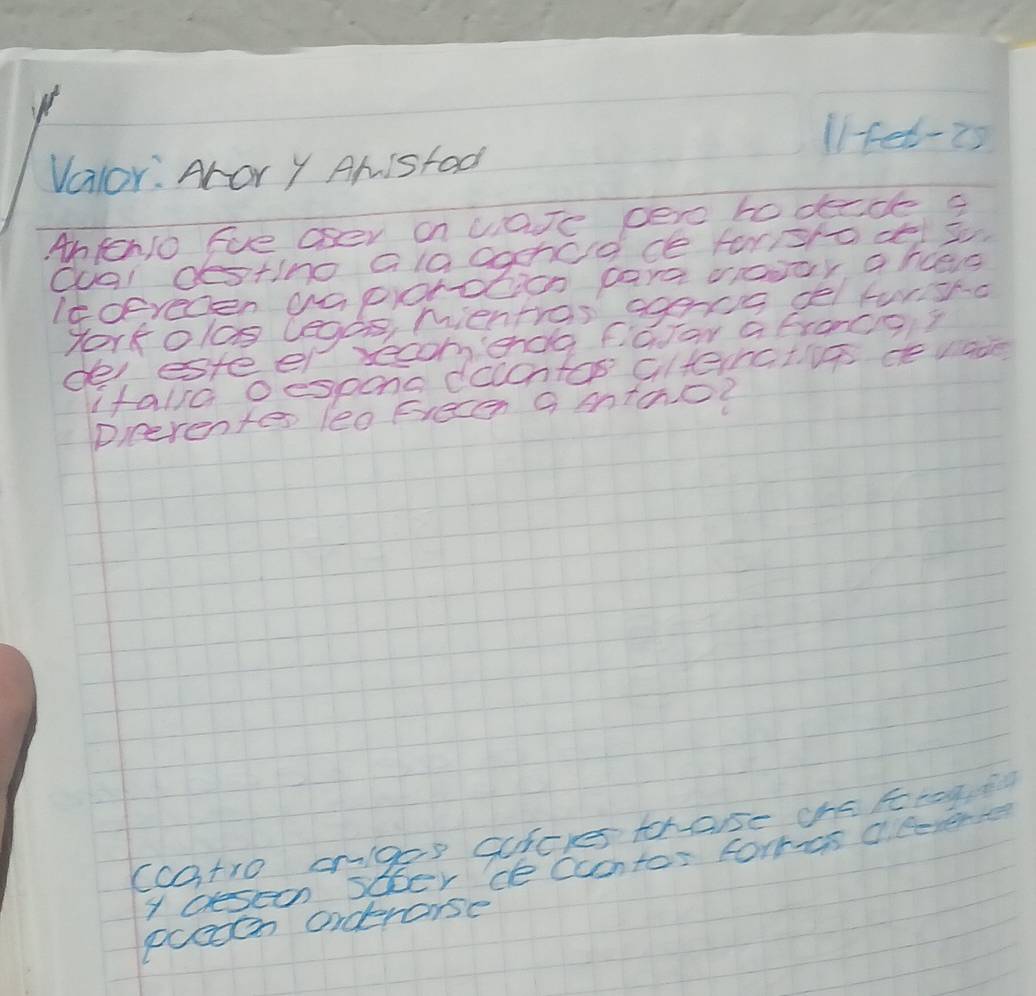 11-feb-25
Valor: Amor y Amistad
Antonio fue aser un viaje pero no decide a
cual destino a la agencia de turismo del sur
le ofrecen una promocion para viajar a nueva
york o las vegas, mientras agencia del turismo
del este el recomienda viajar a francia, y
italia o espana dcuantas alternativas de viaje
Dieerentes leofrecen a antonio?
ccatro amigos quieres tomarse una fotografia
y desean saber de cuantos formas diferentes
pueden ordenarse